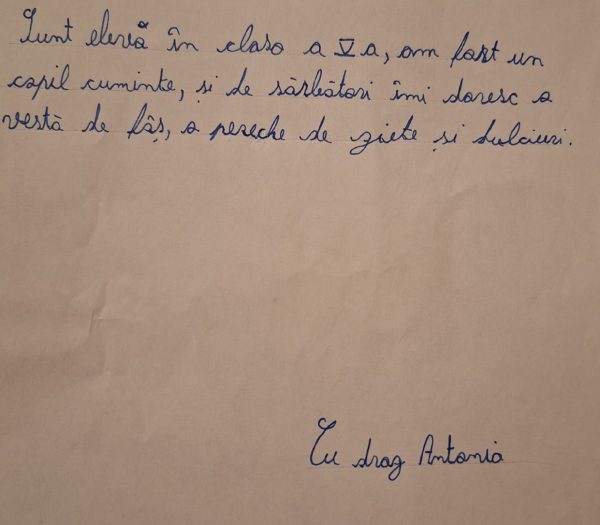 Sunt elevă în clasa a V a, am fost un
copil cuminte, și de sărbători îmi doresc o
vestă de fâș, o pereche de ghete și dulciuri.
Cu drag Antonia